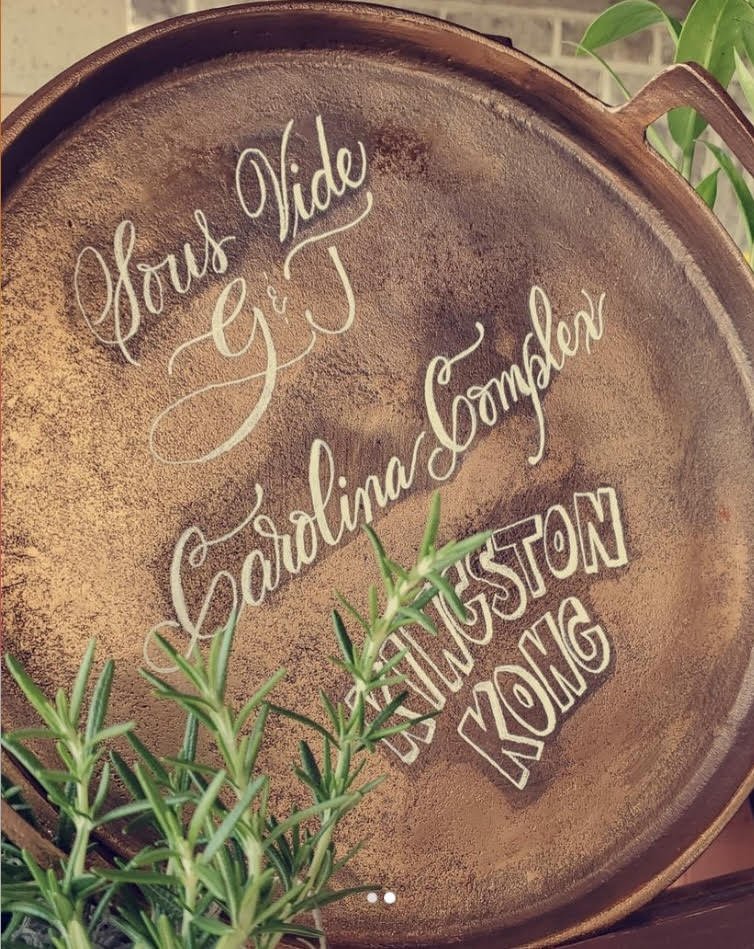 Sous Vide
G & T
Carolina Complex
KINGSTON
KONG